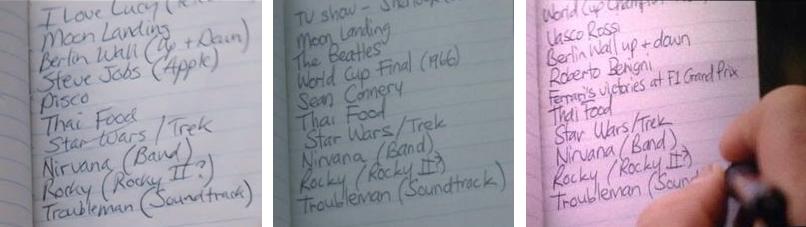 I Love Lucy
Moon Landing
Berlin Wall (Up + Down)
Steve Jobs (Apple)
Disco
Thai Food
Star Wars / Trek
Nirvana (Band)
Rocky (Rocky II?)
Troubleman (Soundtrack)
TV show -
Moon Landing
The Beatles
World Cup Final (1966)
Sean Connery
Thai Food
Star Wars / Trek
Nirvana (Band)
Rocky (Rocky II?)
Troubleman (Soundtrack)
World Cup
Vasco Rossi
Berlin Wall up + down
Roberto Benigni
Ferrari's victories at F1 Grand Prix
Thai Food
Star Wars/Trek
Nirvana (Band)
Rocky (Rocky II?)
Troubleman (Sound